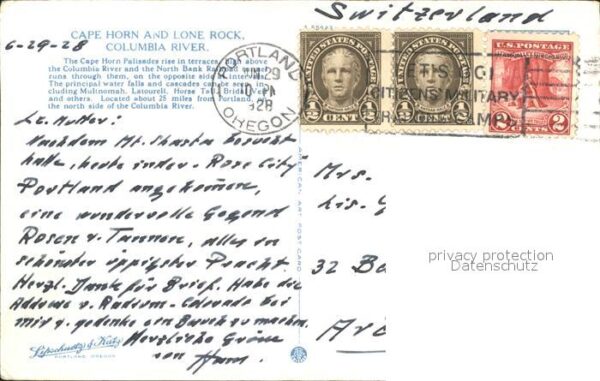 Switzerland
6-29-28
CAPE HORN AND LONE ROCK,
COLUMBIA RIVER.
The Cape Horn Palisades rise in terraces high above
the Columbia River and the North Bank Railroad
runs through them, on the opposite side
The principal water falls and cascades
cluding Multnomah, Latourell, Horse Tail, Bridal Veil
and others. Located about 25 miles from Portland, on
the north side of the Columbia River.
PORTLAND
JUN 29
10 PM
1928
OREGON
UNITED STATES POSTAGE
1/2 CENT 1/2
UNITED STATES POSTAGE
1/2 CENT 1/2
U.S. POSTAGE
2 CENTS 2
CITIZENS' MILITARY
TRAINING CAMPS
Lb. Mutter:
Nachdem Mt. Shasta besucht
habe, heute in der "Rose City"
Portland angekommen,
eine wundervolle Gegend
Rosen u. Tannen, alles in
schönster üppigster Pracht.
Herzl. Dank für Brief. Habe die
Addresse v. Radium-Colorado bei
mir u. gedenke den Besuch zu machen.
Herzliche Grüsse
von
Mrs.
32
AMERICAN ART POST CARD
Lipschuetz & Katz
PORTLAND, OREGON
privacy protection
Datenschutz